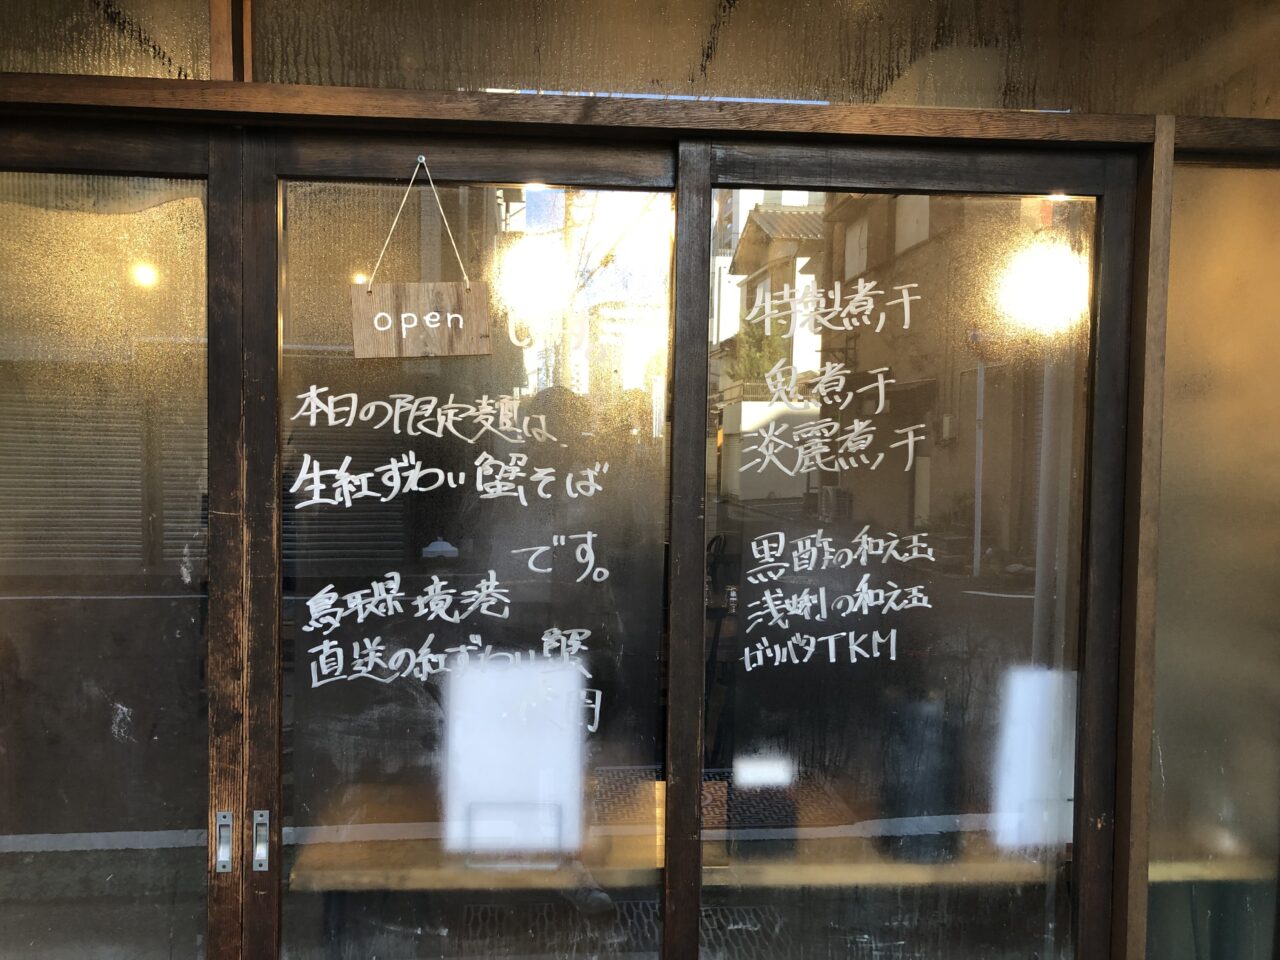 open
本日の限定麺は
生紅ずわい蟹そば
です。
鳥取県 境港
直送の紅ずわい蟹
円
特製煮干
鬼煮干
淡麗煮干
黒酢の和え玉
浅蜊の和え玉
ロリバタTKM